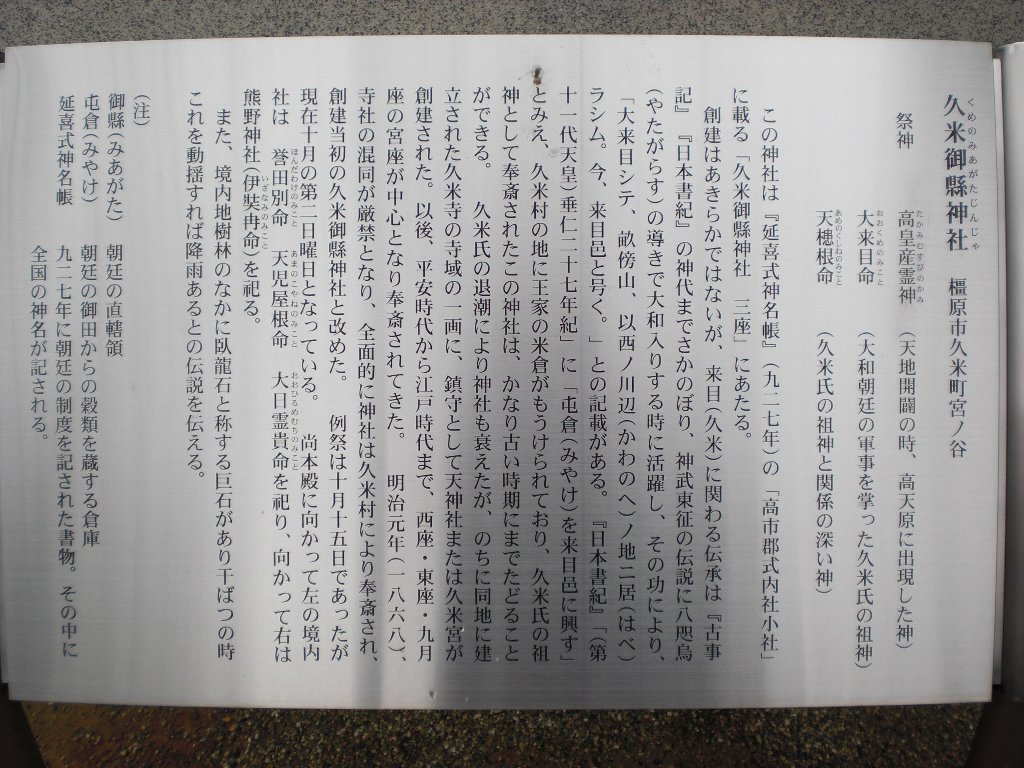 久米御縣神社 橿原市久米町宮ノ谷
くめのみあがたじんじゃ
祭神 高皇産霊神 (天地開闢の時、高天原に出現した神)
たかみむすびのかみ
大来目命 (大和朝廷の軍事を掌った久米氏の祖神)
おおくめのみこと
天櫓根命 (久米氏の祖神と関係の深い神)
あめのつしねのみこと
この神社は『延喜式神名帳』(九二七年)の「高市郡式内社小社」
に載る「久米御縣神社 三座」にあたる。
創建はあきらかではないが、来目(久米)に関わる伝承は『古事
記』『日本書紀』の神代までさかのぼり、神武東征の伝説に八咫烏
(やたがらす)の導きで大和入りする時に活躍し、その功により、
「大来目シテ、畝傍山、以西ノ川辺(かわのへ)ノ地ニ居(はべ)
ラシム。今、来目邑と号く。」との記載がある。『日本書紀』「(第
十一代天皇)垂仁二十七年紀」に「屯倉(みやけ)を来目邑に興す」
とみえ、久米村の地に王家の米倉がもうけられており、久米氏の祖
神として奉斎されたこの神社は、かなり古い時期にまでたどること
ができる。 久米氏の退潮により神社も衰えたが、のちに同地に建
立された久米寺の寺域の一画に、鎮守として天神社または久米宮が
創建された。以後、平安時代から江戸時代まで、西座・東座・九月
座の宮座が中心となり奉斎されてきた。 明治元年(一八六八)、
寺社の混同が厳禁となり、全面的に神社は久米村により奉斎され、
創建当初の久米御縣神社と改めた。 例祭は十月十五日であったが
現在十月の第二日曜日となっている。 尚本殿に向かって左の境内
社は 誉田別命 天児屋根命 大日霊貴命を祀り、向かって右は
ほんだわけのみこと あまのこやねのみこと おおひるめむちのみこと
熊野神社(伊奘冉命)を祀る。
いざなみのみこと
また、境内地樹林のなかに臥龍石と称する巨石があり干ばつの時
これを動揺すれば降雨あるとの伝説を伝える。
(注)
御縣(みあがた) 朝廷の直轄領
屯倉(みやけ) 朝廷の御田からの穀類を蔵する倉庫
延喜式神名帳 九二七年に朝廷の制度を記された書物。その中に
全国の神名が記される。